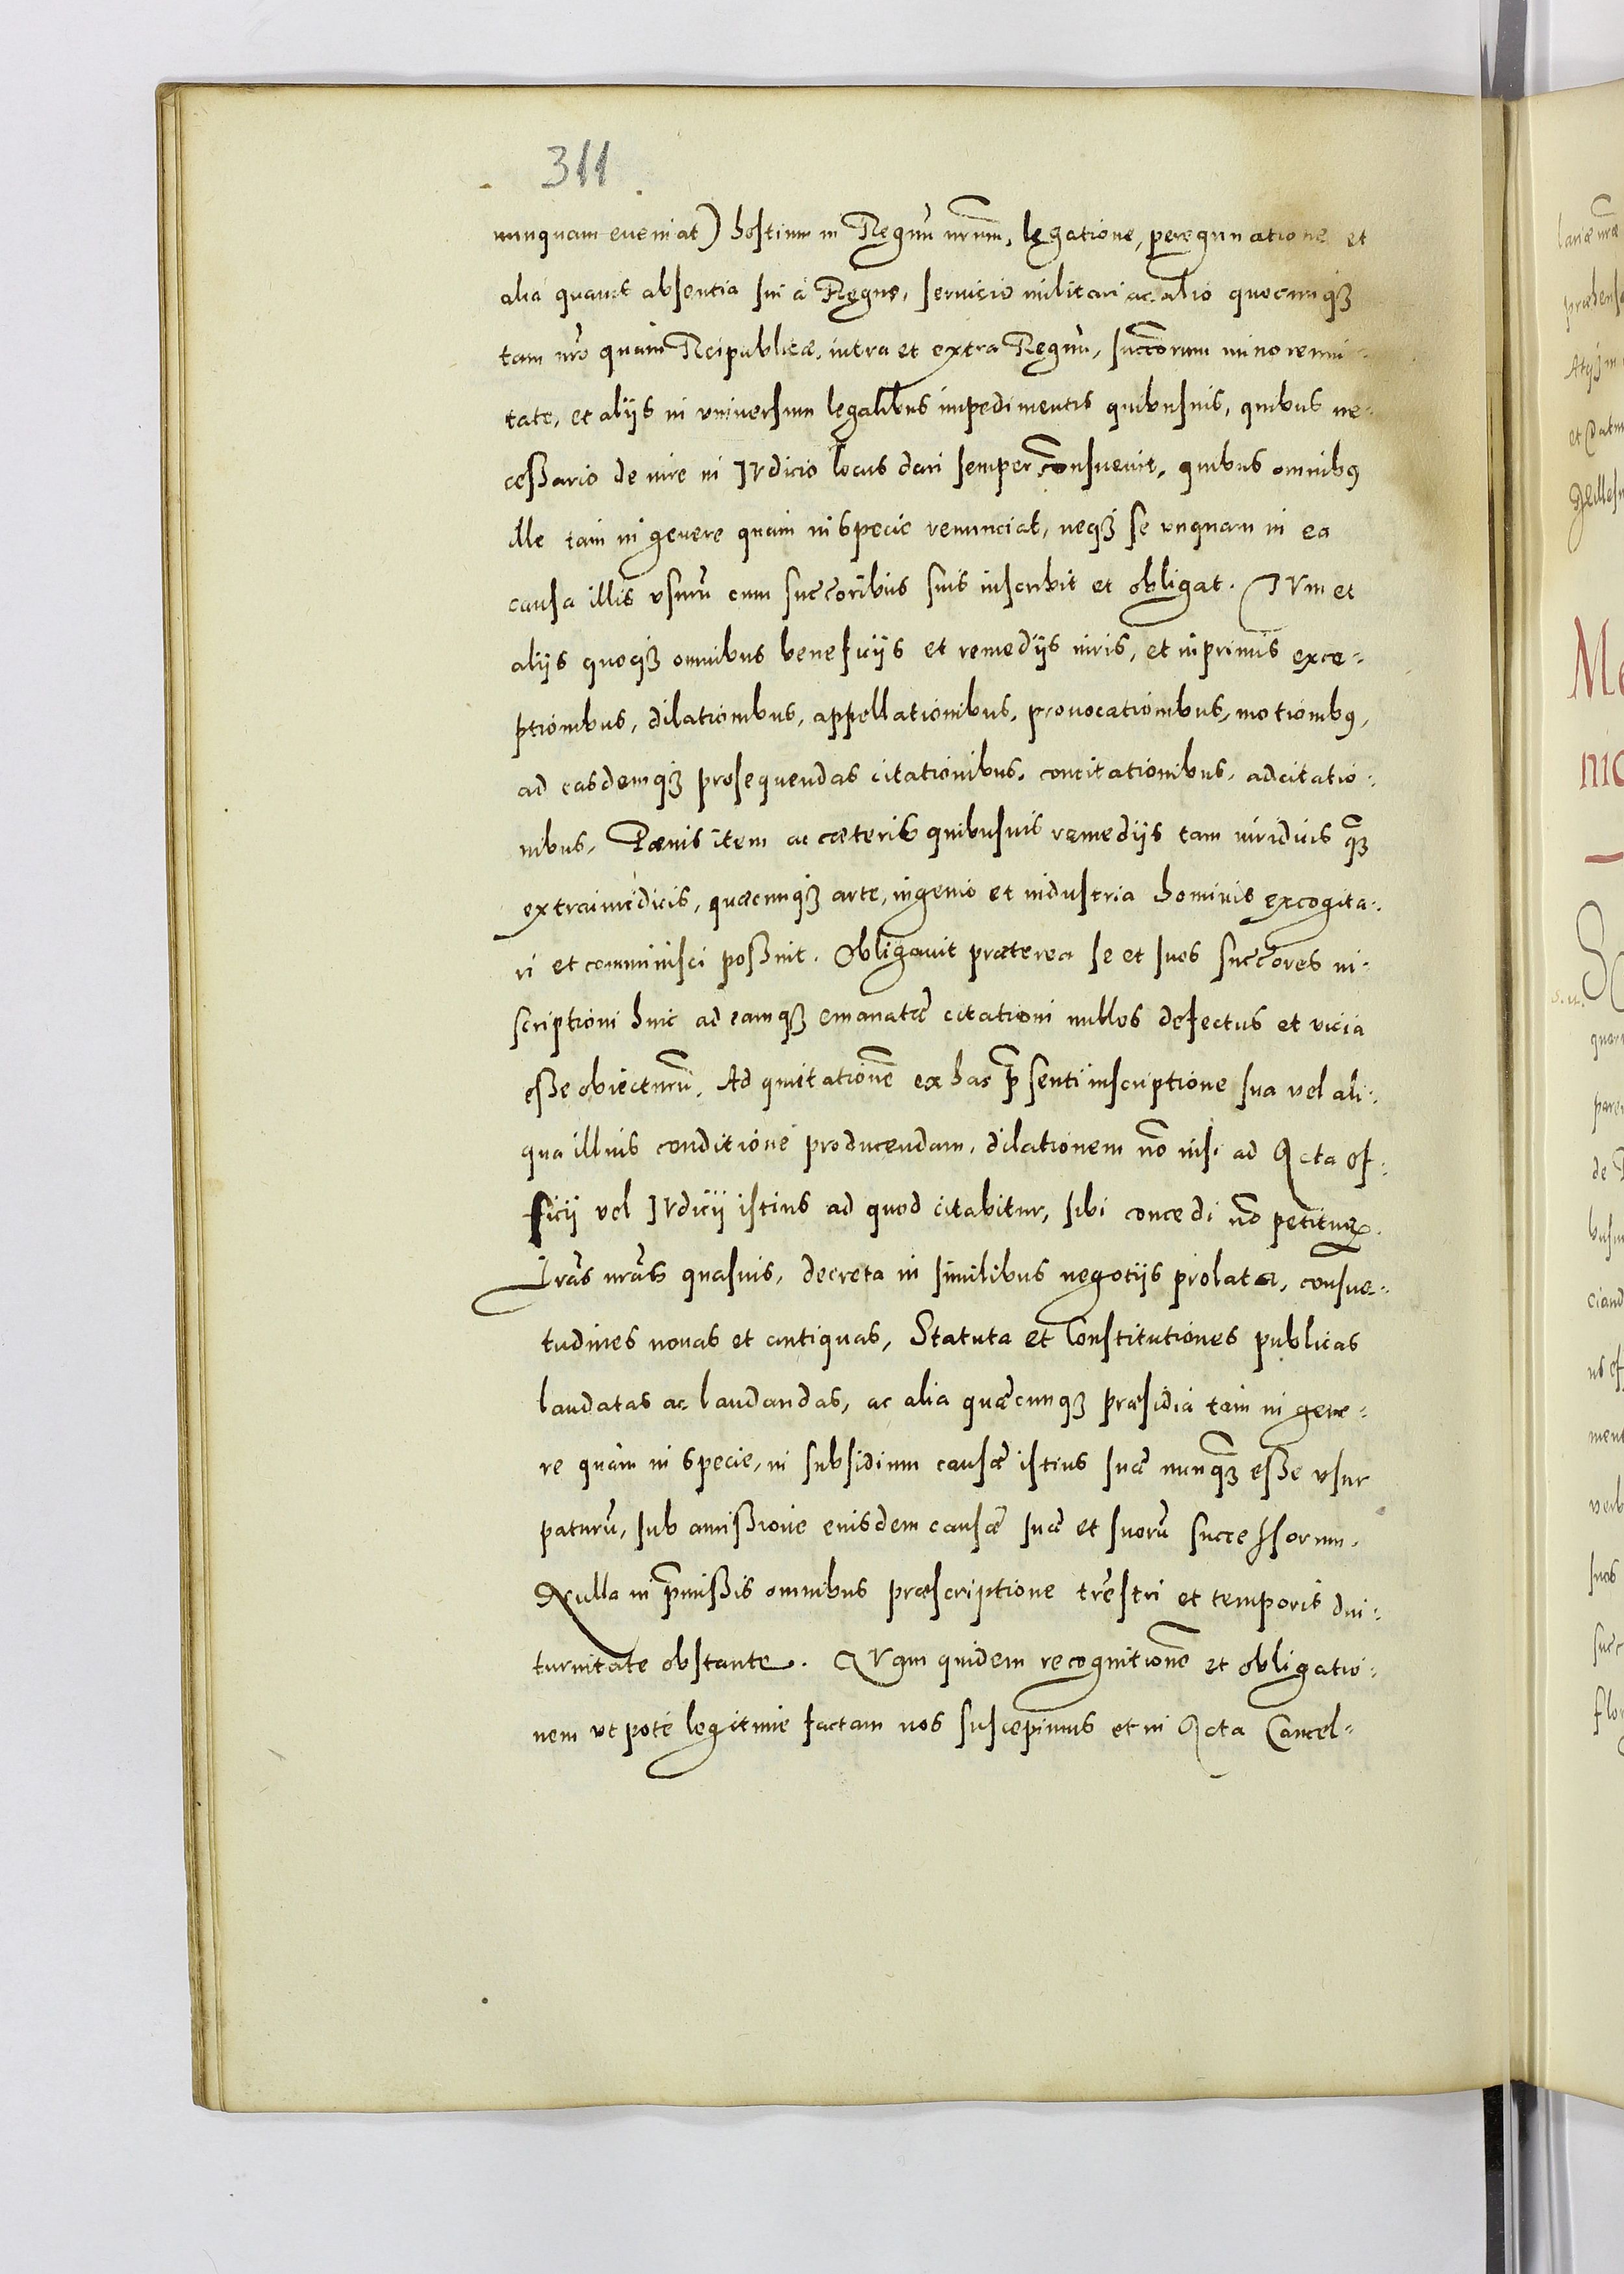 311
nunquam eueniat) hostium in Regnũ nr̃um, legatione, peregrinatione et
alia quauis absentia sui à Regno, seruicio militari ac alio quocunqꝫ
tam nr̃o quàm Reipublicæ, intra et extra Regnũ, succ̃orum minorenni-
tate, et alijs in vniuersum legalibus impedimentis quibusuis, quibus ne-
cessario de iure in IVdicio locus dari semper consueuit, quibus omnibꝰ
ille tam in genere quam in specie renunciat, neqꝫ se vnquam in ea
causa illis vsurũ cum succ̃oribus suis inscribit et obligat. IVm et
alijs quoqꝫ omnibus beneficijs et remedijs iuris, et inprimis exce-
ptionibus, dilationibus, appellationibus, prouocationibus, motionibꝰ,
ad easdemqꝫ prosequendas citationibus, concitationibus, adcitatio-
nibus, Pænis item ac cæteris quibusuis remedijs tam iuridicis qꝫ
extraiuridicis, quæcunqꝫ arte, ingenio et industria hominis excogita-
ri et comminisci possunt. Obligauit præterea se et suos succ̃ores in-
scriptioni huic ad eamqꝫ emanatæ citationi nullos defectus et vicia
esse obiecturũ. Ad quietationẽ ex hac p̃senti inscriptione sua vel ali-
qua illius conditione producendam, dilationem nõ nisi ad Acta Of-
ficij vel IVdicij istius ad quod citabitur, sibi concedi nõ petiturꝰ.
Lr̃as nr̃as quasuis, decreta in similibus negotijs prolata, consue-
tudines nouas et antiquas, Statuta et Constitutiones publicas
laudatas ac laudandas, ac alia quæcunqꝫ præsidia tam in gene-
re quàm in specie, in subsidium causæ istius suæ nunqꝫ esse vsur
paturũ, sub amissione eiusdem causæ suæ et suorũ successorum.
Nulla in p̃missis omnibus præscriptione tr̃estri et temporis diu-
turnitate obstante. QVam quidem recognitionẽ et obligatio-
nem vt poté legitime factam nos suscepimus et in Acta Cancel-